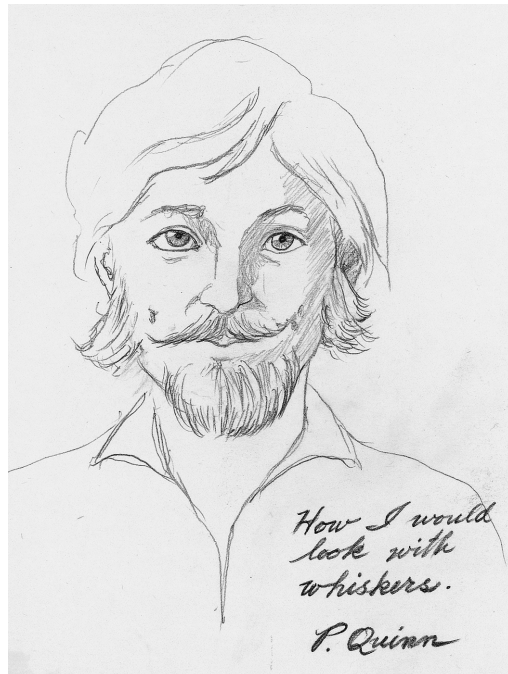 How I would
look with
whiskers.
P. Quinn